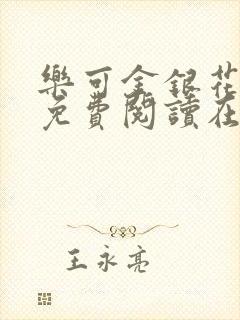 樂可金銀花
免費閱讀在
王永亮